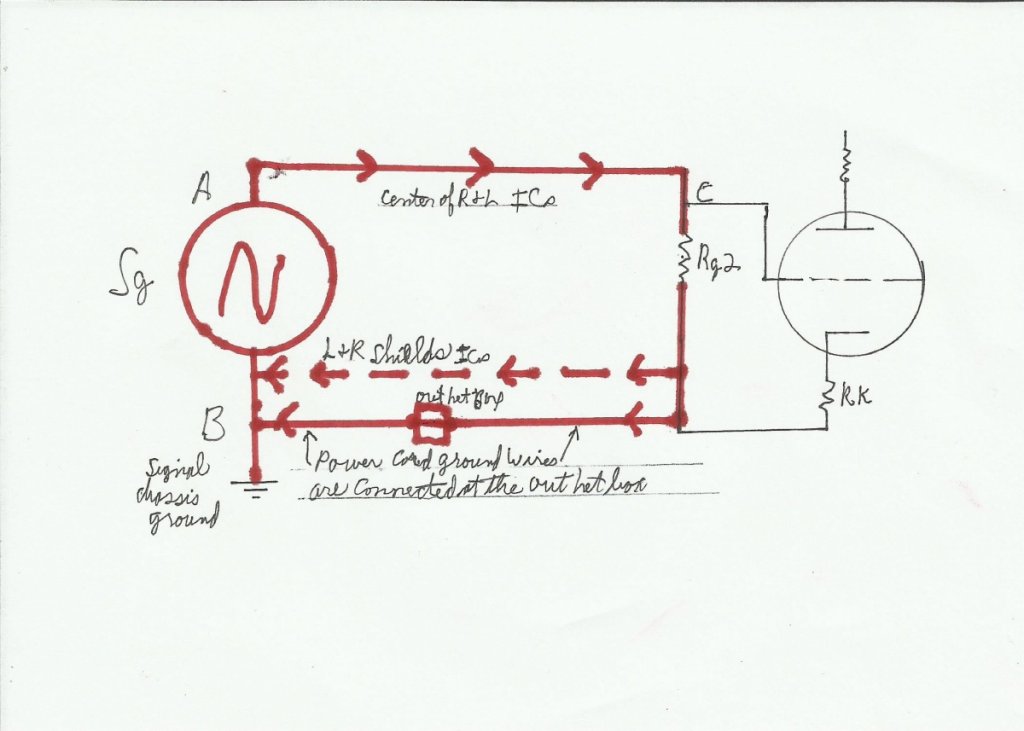 A
center of R+L ICs
C
Sg
Rg2
L+R Shields ICs
outlet Box
RK
B
Power Cord ground wires
are Connected at the outlet box
Signal
chassis
ground